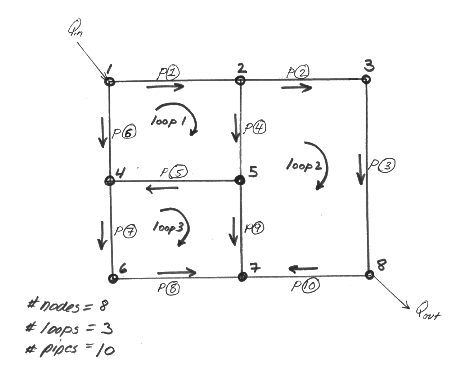 Qin
1
2
3
P①
P②
loop 1
P⑥
P④
loop 2
P③
4
P⑤
5
loop3
P⑦
P⑨
6
P⑧
7
P⑩
8
Qout
# nodes = 8
# loops = 3
# pipes = 10